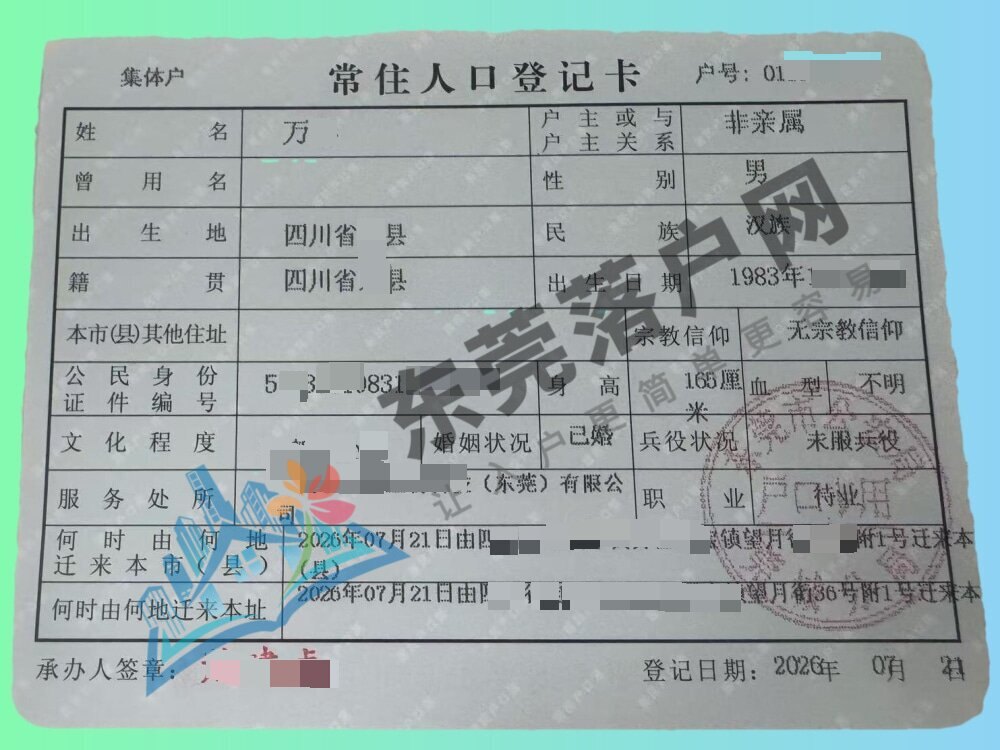 集体户
常住人口登记卡
户号：01
姓名 万 户主或与户主关系 非亲属
曾用名 性别 男
出生地 四川省 县 民族 汉族
籍贯 四川省 县 出生日期 1983年1
本市(县)其他住址 宗教信仰 无宗教信仰
公民身份证件编号 5 3 19831 身高 165厘米 血型 不明
文化程度 婚姻状况 已婚 兵役状况 未服兵役
服务处所 （东莞）有限公司 职业 待业
何时由何地迁来本市(县) 2026年07月21日由四 镇望月街 附1号迁来本(县)
何时由何地迁来本址 2026年07月21日由四 望月街36号附1号迁来本
承办人签章：
登记日期：2026年 07月 21日
东莞落户网
让入户更简单更容易
户口专用